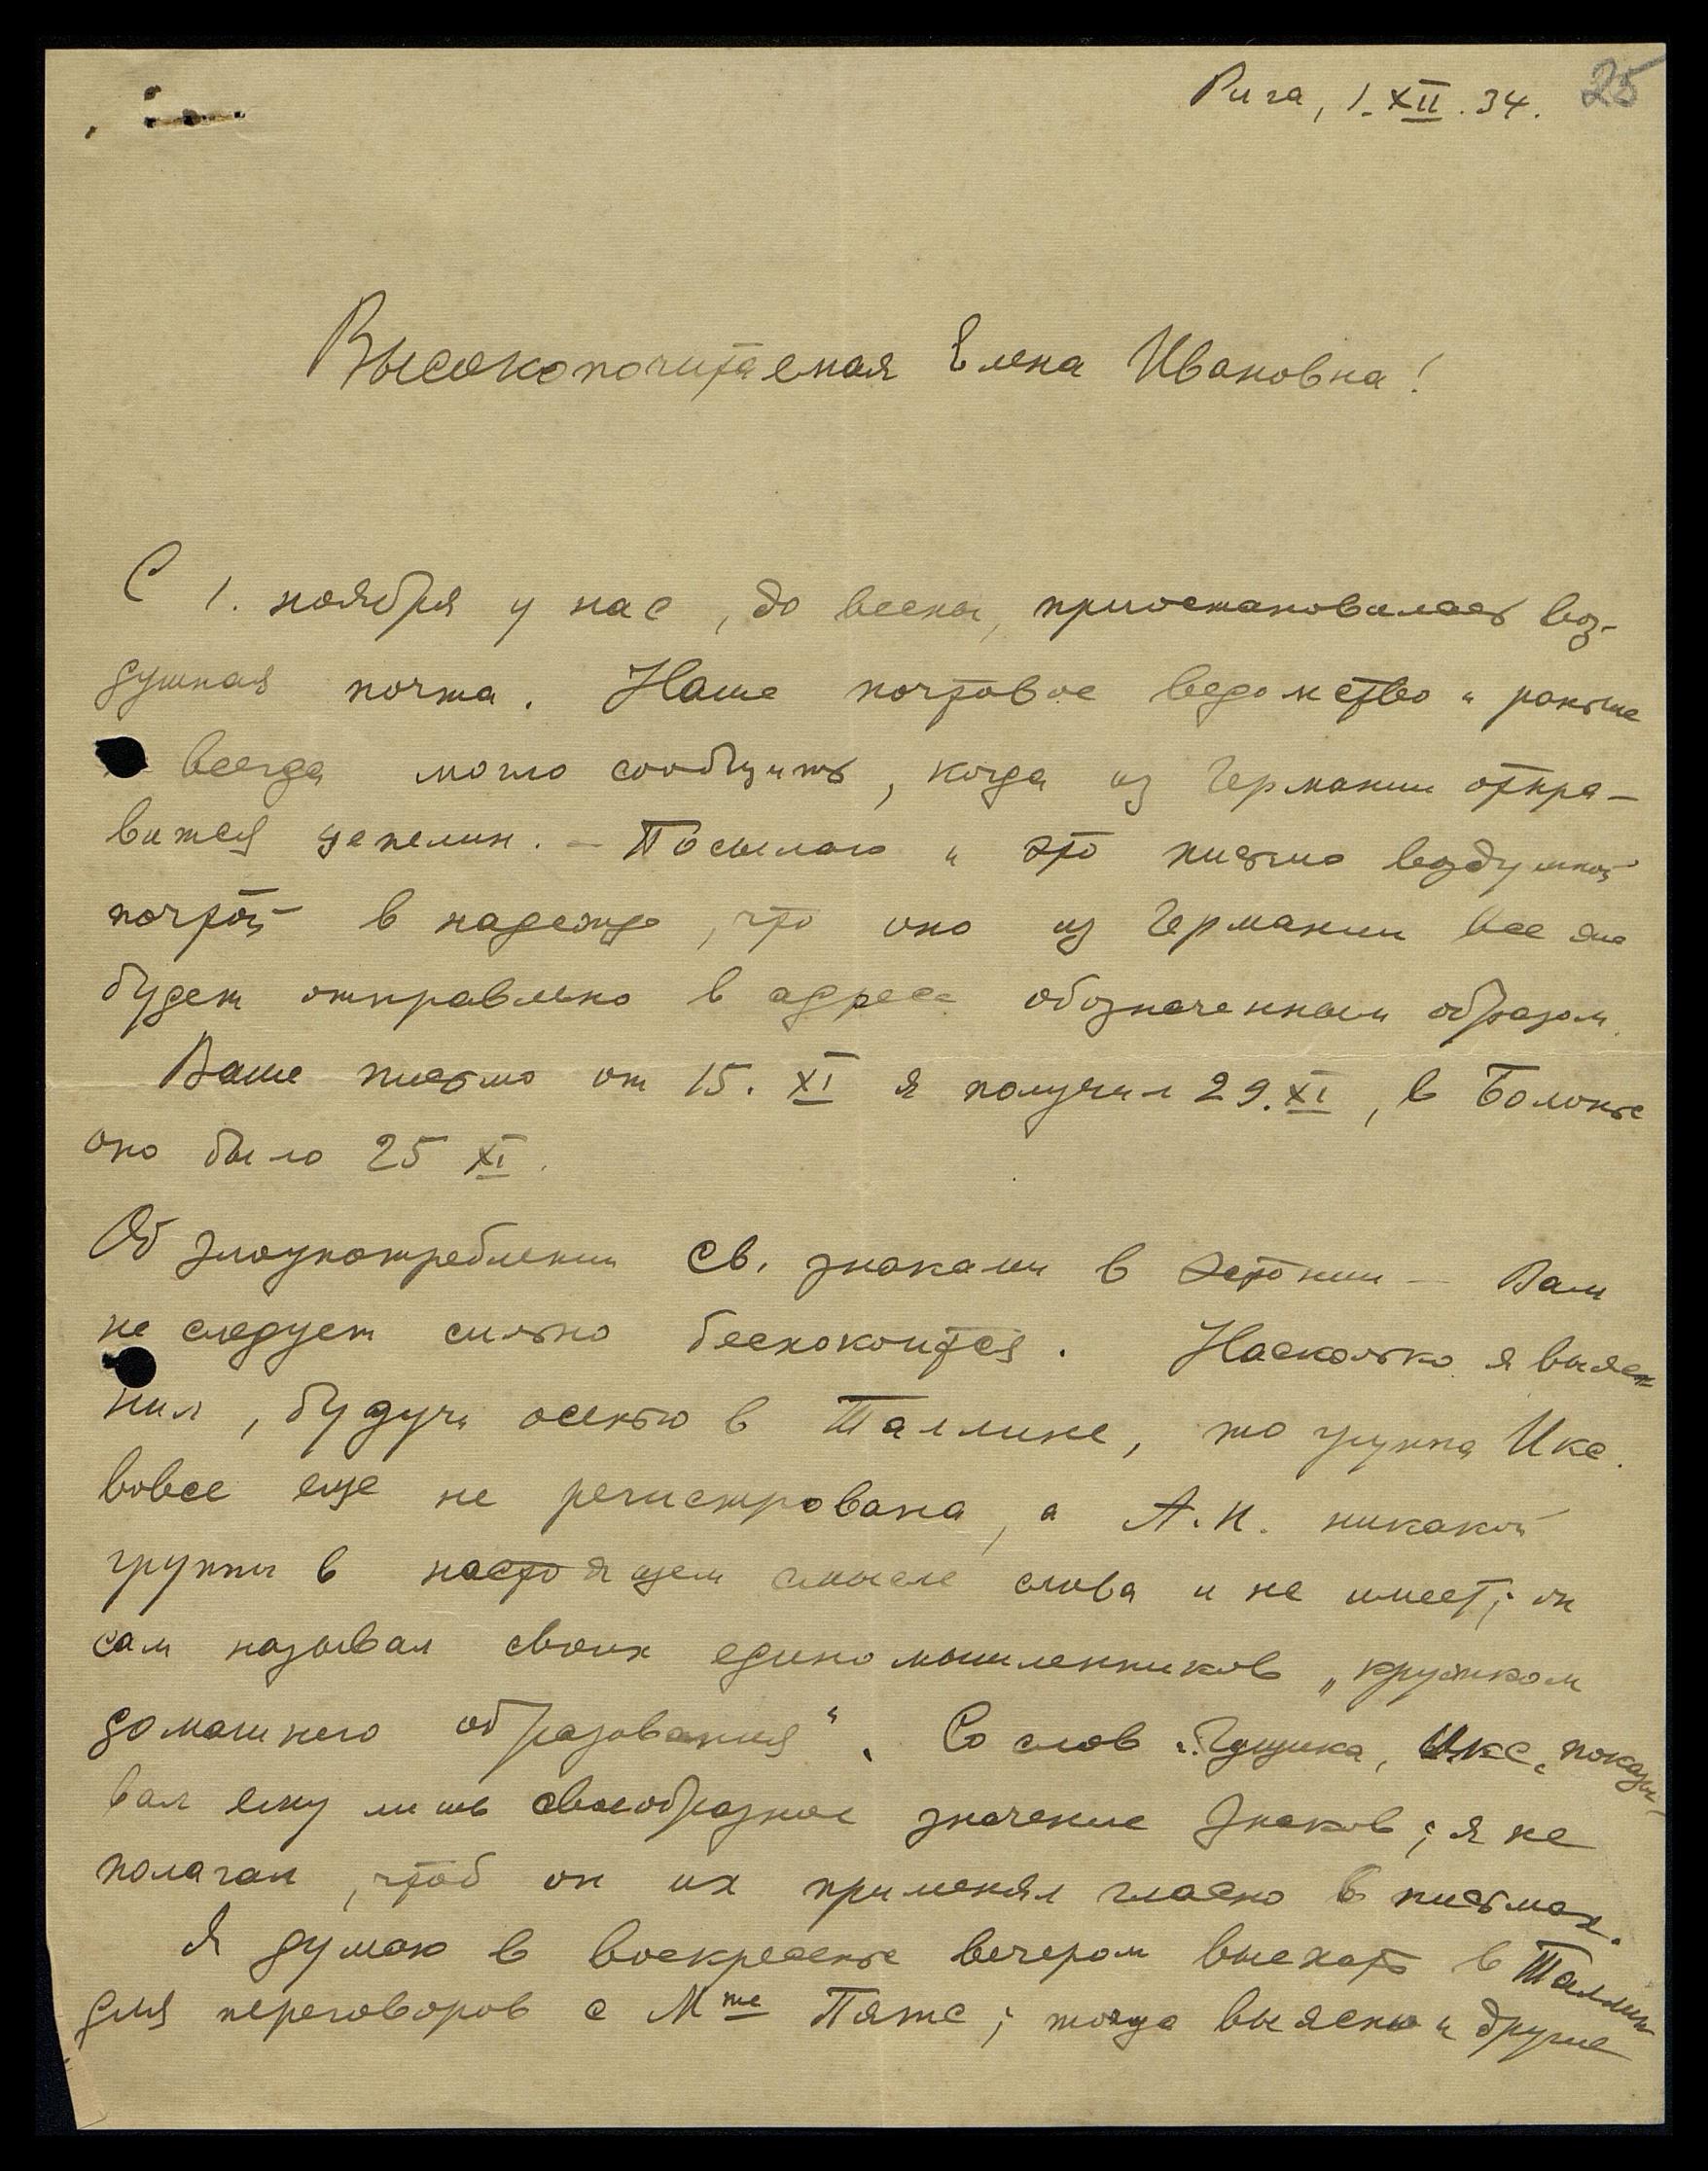 Рига, 1.XII.34. 25
Высокопочитаемая Елена Ивановна!
С 1. ноября у нас, до весны, приостановилась воз-
душная почта. Наше почтовое ведомство и раньше
всегда могло сообщить, когда из Германии отпра-
вится цепелин. – Посылаю и это письмо воздушной
почтой в надежде, что оно из Германии все же
будет отправлено в адресе обозначенным образом.
Ваше письмо от 15. XI я получил 29. XI, в Болонье
оно было 25 XI.
Об злоупотреблении Св. знаками в Эстонии – Вам
не следует сильно беспокоиться. Насколько я выяс-
нил, будучи осенью в Таллине, то группа Икс.
вовсе еще не регистрована, а А.К. никакой
группы в настоящем смысле слова и не имеет; он
сам называл своих единомышленников „кружком
домашнего образования“. Со слов Гущика, Икс. показы-
вал ему лишь своеобразное значение Знаков; я не
полагал, чтоб он их применял гласно в письмах.
Я думаю в воскресенье вечером выехать в Таллин
для переговоров с Mme Пятс; тогда выясню и другие